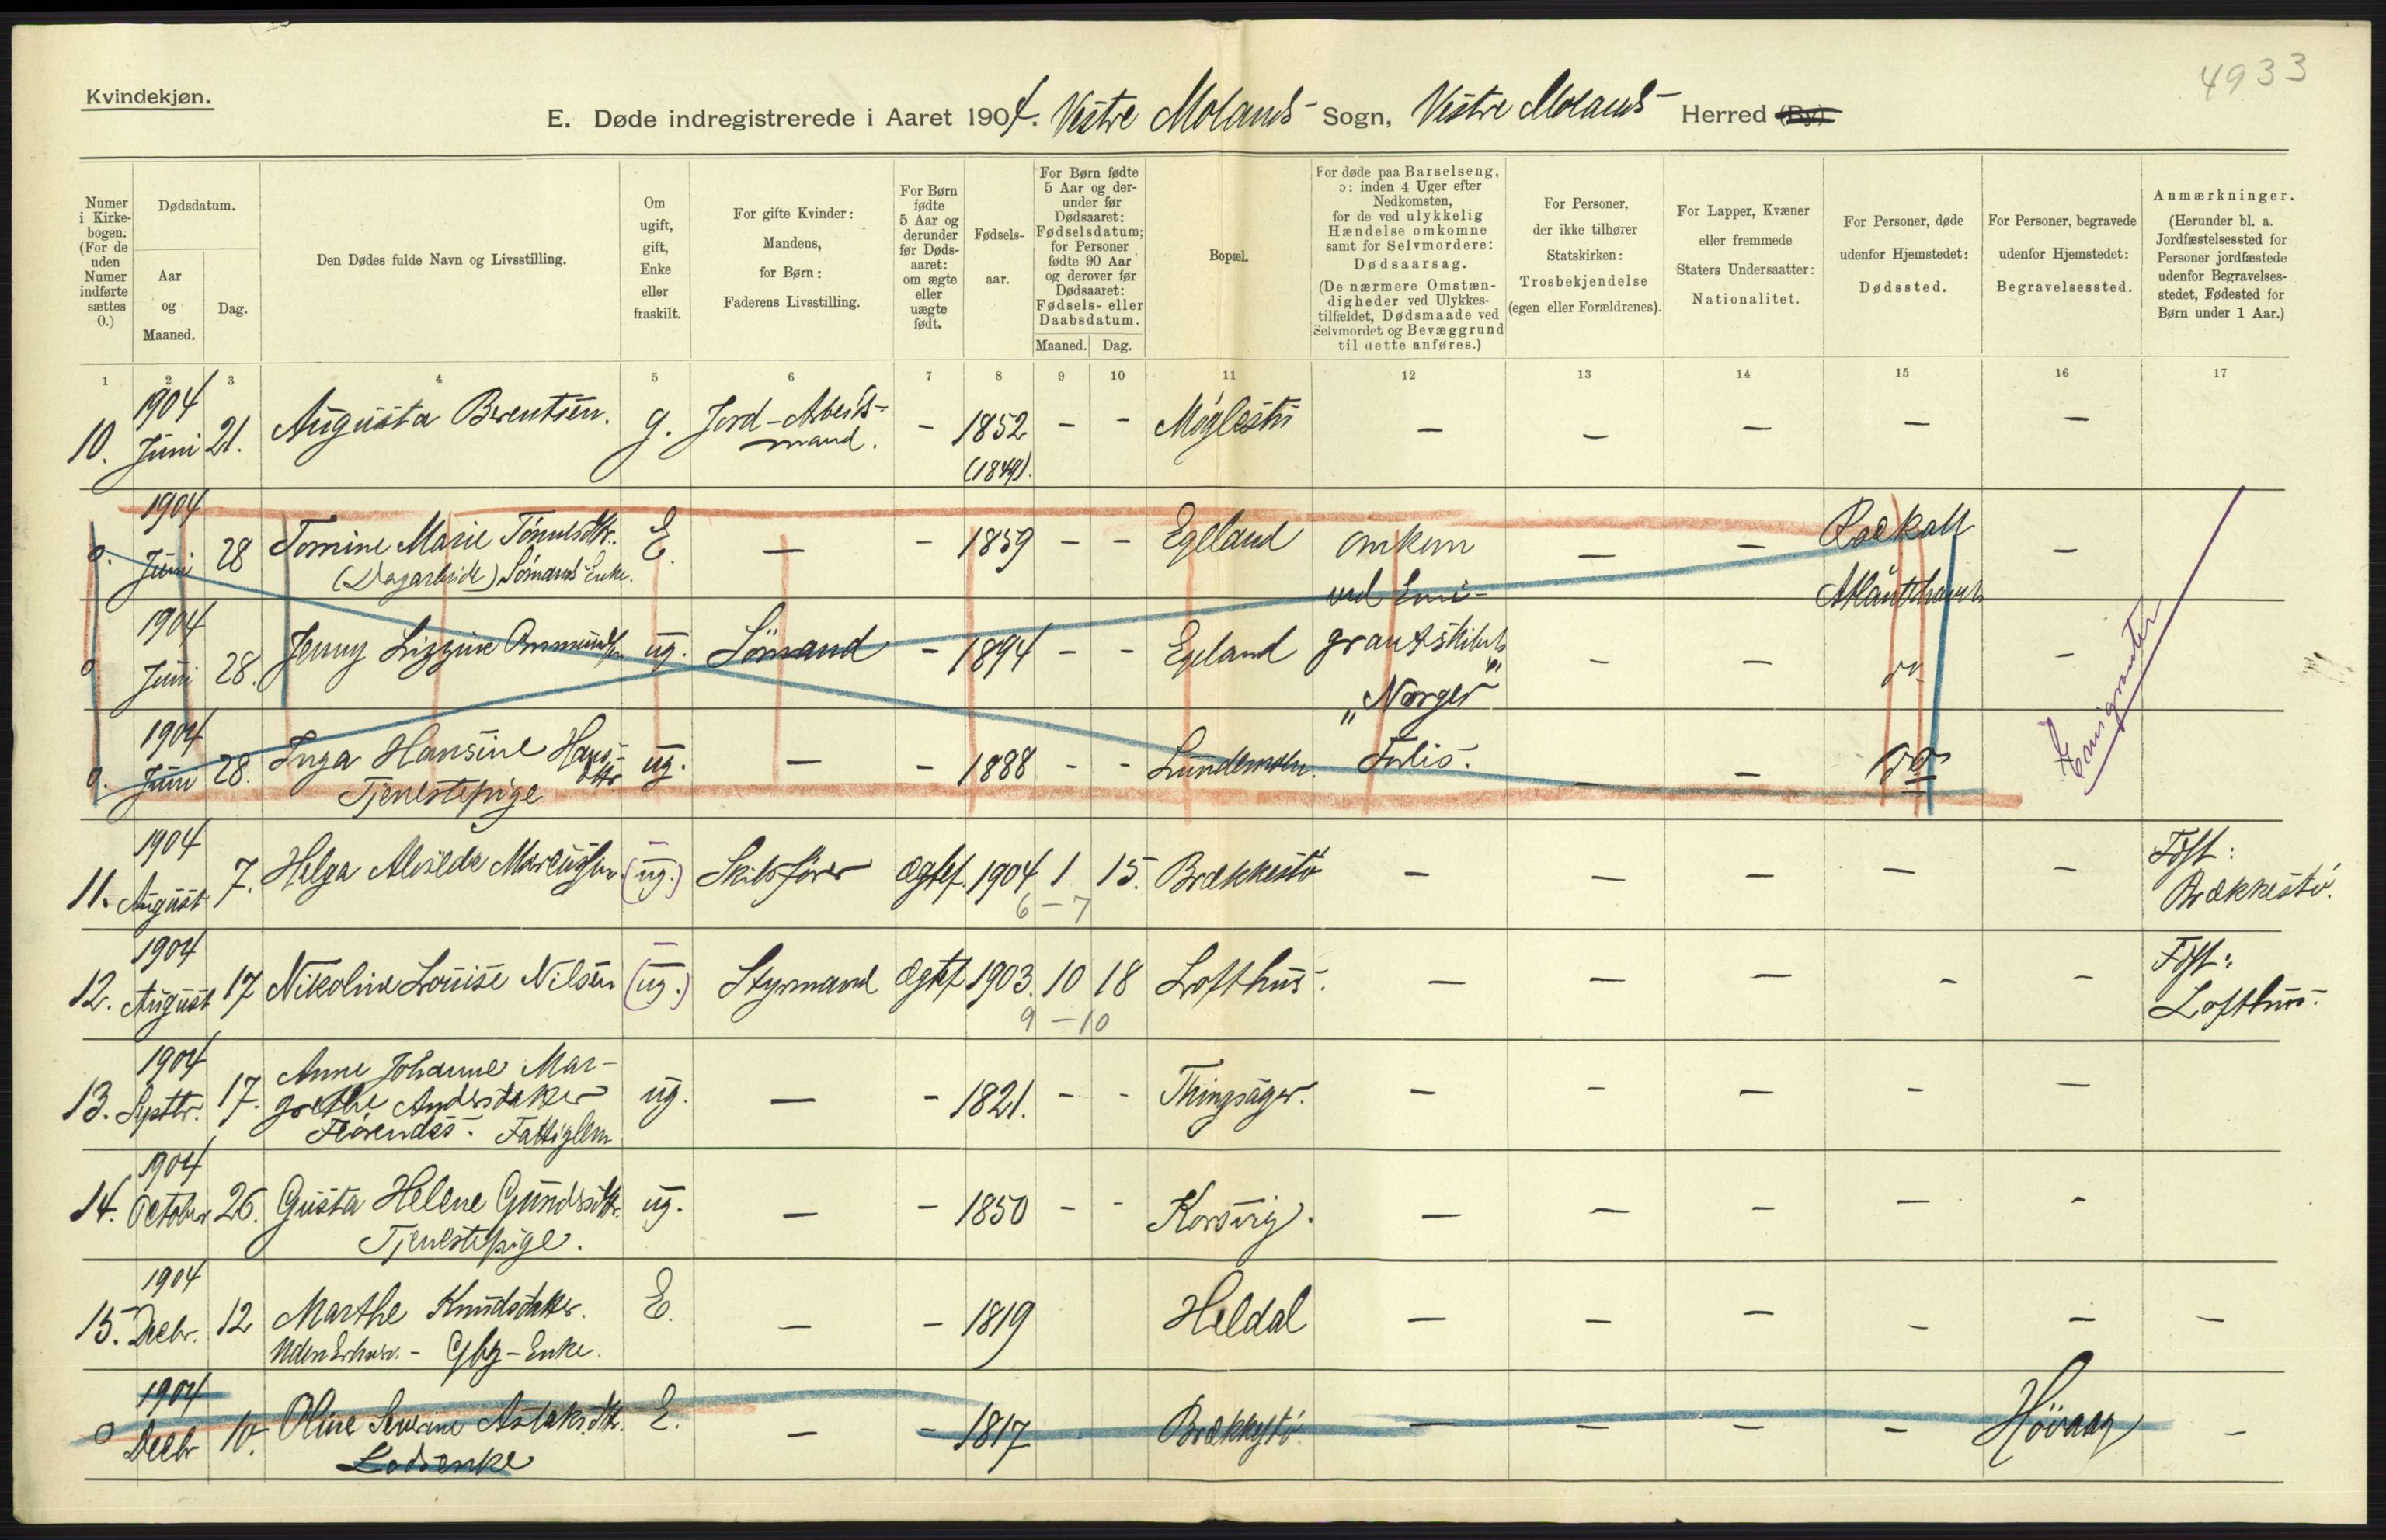 4933
Kvindekjøn.
E. Døde indregistrerede i Aaret 1904. Vestre Molands Sogn, Vestre Molands Herred (By).
Numer i Kirke-bogen. (For de uden Numer indførte sættes 0.)
Dødsdatum.
Aar og Maaned.
Dag.
Den Dødes fulde Navn og Livsstilling.
Om ugift, gift, Enke eller fraskilt.
For gifte Kvinder: Mandens, for Børn: Faderens Livsstilling.
For Børn fødte 5 Aar og derunder før Døds-aaret: om ægte eller uægte født.
Fødsels-aar.
For Børn fødte 5 Aar og der-under før Dødsaaret: Fødselsdatum; for Personer fødte 90 Aar og derover før Dødsaaret: Fødsels- eller Daabsdatum.
Maaned. Dag.
Bopæl.
For døde paa Barselseng, ɔ: inden 4 Uger efter Nedkomsten, for de ved ulykkelig Hændelse omkomne samt for Selvmordere: Dødsaarsag. (De nærmere Omstæn-digheder ved Ulykkes-tilfældet, Dødsmaade ved Selvmordet og Bevæggrund til dette anføres.)
For Personer, der ikke tilhører Statskirken: Trosbekjendelse (egen eller Forældrenes).
For Lapper, Kvæner eller fremmede Staters Undersaatter: Nationalitet.
For Personer, døde udenfor Hjemstedet: Dødssted.
For Personer, begravede udenfor Hjemstedet: Begravelsessted.
Anmærkninger. (Herunder bl. a. Jordfæstelsessted for Personer jordfæstede udenfor Begravelses-stedet, Fødested for Børn under 1 Aar.)
1 2 3 4 5 6 7 8 9 10 11 12 13 14 15 16 17
1904
10. Juni 21. Augusta Berentsen. g. Jord-Arbeids- - 1852 - - Møglestu - - - - -
mand.
(1849).
1904
0. Juni 28 Tomine Marie Tønnesdtr. E. - - 1859 - - Egeland omkom - - Rockall -
(Dagarbeide) Sømands Enke.
ved Emi- Atlanthavet
1904
0 Juni 28. Jenny Lizzine Ommundsen ug. Sömand - 1894 - - Egeland grantskibets - - do -
"Norges"
1904
0. Juni 28. Inga Hansine Hans- ug. - - 1888 - - Lundemoen. Forlis. - - do
dtr.
Tjenestepige
Emigranter
1904
11. August 7. Helga Alvilde (ug.) Skibsfører ægtef. 1904 1 15. Brækkestø - - - - - Fdst:
Brækkestø.
6 - 7
1904
12. August 17 Nikoline Louise Nilsen (ug.) Styrmand ægtef 1903. 10 18 Lofthus. - - - - - Fdst:
Lofthus.
9 - 10
1904
13. Septbr. 17. Anne Johanne Mar- ug. - - 1821. - - Thingsager. - - - - -
grethe Andersdatter
Florendss. Fattiglem
1904
14. October 26. Gusta Helene Gundersdtr. ug. - - 1850 - - Korsvig. - - - - -
Tjenestepige.
1904
15. Decbr. 12 Marthe Knudsdatter. E. - - 1819 Heldal - - - - - -
Uden Erhverv. - Gbr-Enke.
1904
0 Decbr 10. Oline Severine Aslaksdtr. E. - - 1817 Brækkestø - - - - Høvaag -
Lodsenke